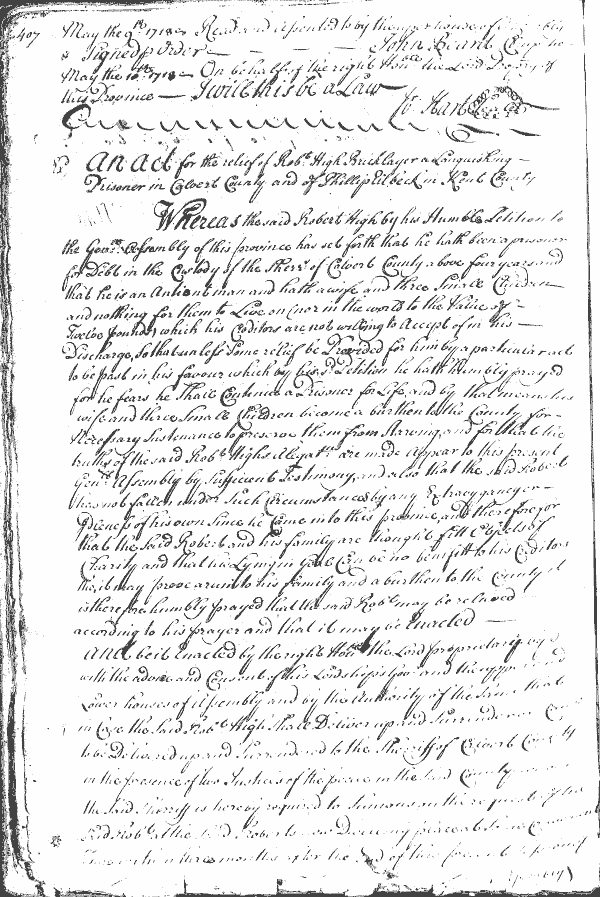 407
May the 9th 1718 Read and assented to by the upper house of Assembly
& Signed p order John Beard
May the 10th 1718 On behalf of the right Honble the Lord Propry of
this Province I will this be a Law
Jo: Hart
An Act for the relief of Robt High Bricklayer a Languishing
Prisoner in Calvert County and of Phillip Elbeck in Kent County
Whereas the said Robert High by his Humble Petition to
the Genll Assembly of this province has set forth that he hath been a prisoner
for Debt in the Custody of the Sherr. of Calvert County above four years and
that he is an Antient man and hath a wife and three Small Children
and nothing for them to Live on (nor in the world to the Value of
Twelve pounds) which his Creditors are not willing to Accept of in his
Discharge, So that unless Some relief be Provided for him by a particular act
to be past in his favour which by his sd Petition he hath humbly prayed
for he fears he Shall Continue a Prisoner for Life and by that means his
wife and three Small Children become a burthen to the County for
Necessary Sustenance to preserve them from Starving, and for that the
truths of the said Robt Highs Allegatns are made appear to this present
Genll Assembly by Sufficient Testimony, and also that the said Robert
has not fallen under Such Circumstances by any Extravagancy or
Idleness of his own Since he Came into this province, and therefore for
that the said Robert and his family are thought fitt Objects of
Charity and that his Lying in Goal Can be no benefitt to his Creditors
tho it may prove a ruin to his family and a burthen to the County it
is therefore humbly prayed that the said Robt may be relieved
according to his prayer and that it may be Enacted
And be it Enacted by the right Honble the Lord proprietary by &
with the advice and Consent of his Lordships Govr and the upper and
Lower houses of Assembly and by the Authority of the Same that
in Case the Said Robt High Shall Deliver up and Surrender or Cause
to be Delivered up and Surrendered to the Sherriff of Calvert County
in the presence of two Justices of the peace in the said County
the Said Sherriff is hereby required to Sumons on the request of the
said Robt all the said Roberts
within three months after the End of this